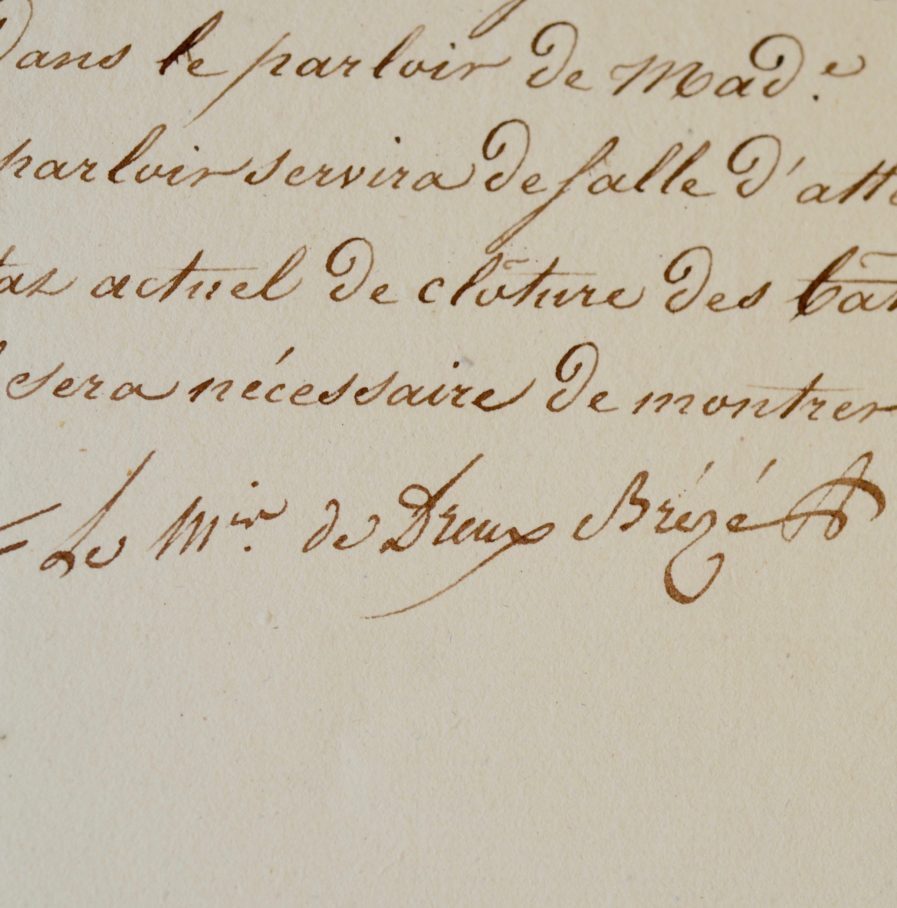 Dans le parloir de Mad.e
parloir servira de salle d'atte
tat actuel de clôture des bât
sera nécessaire de montrer
Le Mis. de Dreux Brézé